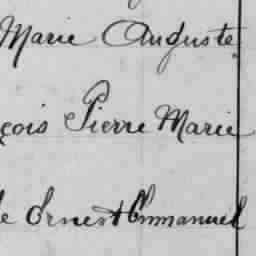 Marie Auguste
çois Pierre Marie
e Ernest Emmanuel